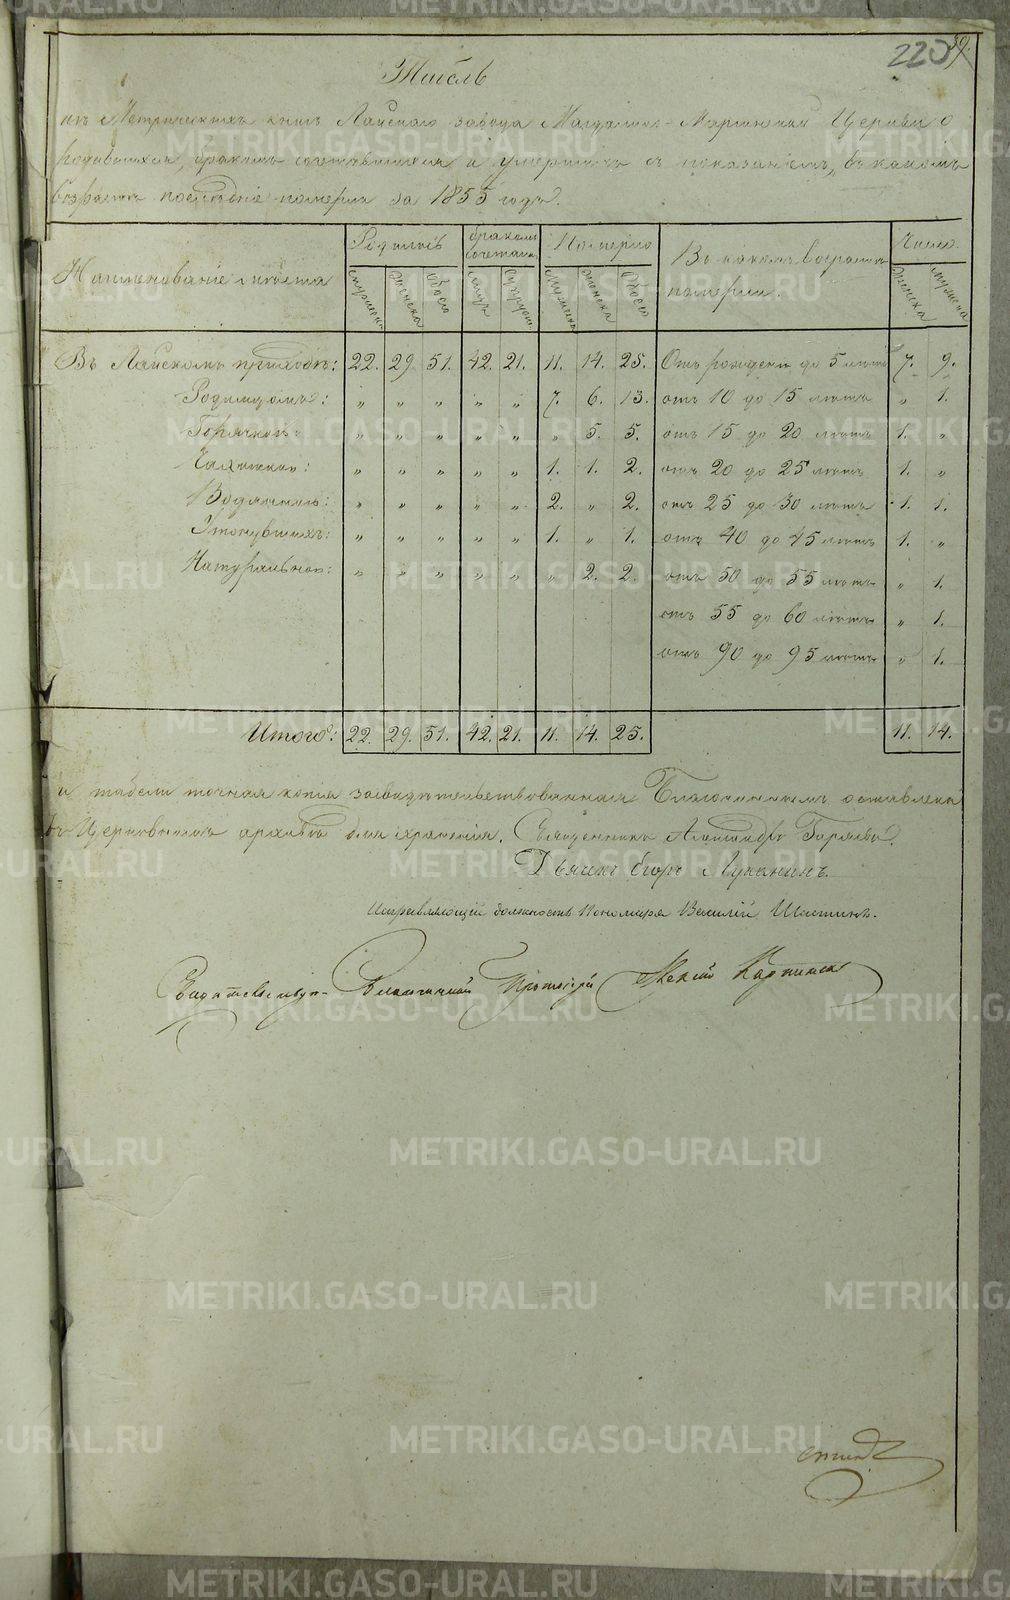 220 39.
Табель
изъ Метрическихъ книгъ Лайскаго завода Магдалино-Маріинской Церкви о
родившихся, бракомъ сочетавшихся и умершихъ съ показаніемъ, въ какомъ
возрастѣ послѣдніе померли за 1855 годъ.
Наименованіе мѣста Родилось бракомъ сочетались Померло Въ какомъ возрастѣ померли. Число
мужеска Женска Обоего лицъ Супруж. Мужеска Женска Обоего Женска мужеска
Въ Лайскомъ приходѣ: 22. 29. 51. 42. 21. 11. 14. 25. Отъ рожденія до 5 лѣтъ 7. 9.
Родимцомъ: „ „ „ „ „ 7. 6. 13. отъ 10 до 15 лѣтъ „ 1.
Горячкой: „ „ „ „ „ „ 5. 5. отъ 15 до 20 лѣтъ 1. „
Чахоткою: „ „ „ „ „ 1. 1. 2. отъ 20 до 25 лѣтъ 1. „
Водяною: „ „ „ „ „ 2. „ 2. отъ 25 до 30 лѣтъ 1. 1.
Утонувшихъ: „ „ „ „ „ 1. „ 1. отъ 40 до 45 лѣтъ 1. „
Натуральною: „ „ „ „ „ „ 2. 2. отъ 50 до 55 лѣтъ „ 1.
отъ 55 до 60 лѣтъ „ 1.
отъ 90 до 95 лѣтъ „ 1.
Итого: 22. 29. 51. 42. 21. 11. 14. 25. 11. 14.
и табели точная копія засвидѣтельствованная Благочиннымъ оставлена
въ Церковномъ архивѣ для храненія. Священникъ Александръ
Дьячекъ Егоръ Луканинъ.
Исправляющій должность Пономаря Василій
Свидѣтельствую Благочинный Протоіерей Алексій
METRIKI.GASO-URAL.RU